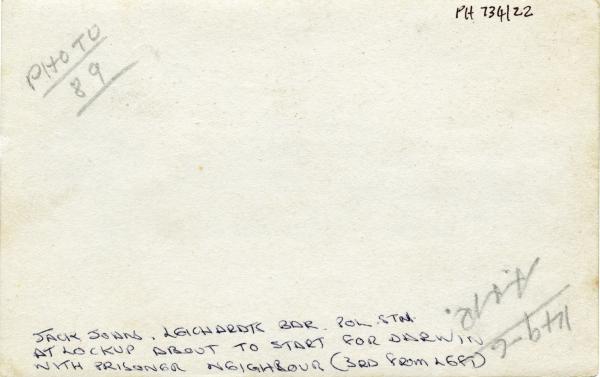 PH 734/22
PHOTO
89
JACK JOHNS. LEICHARDTS BAR. POL. STN.
AT LOCKUP ABOUT TO START FOR DARWIN
WITH PRISONER NEIGHBOUR (3RD FROM LEFT)